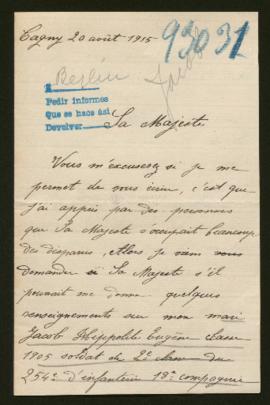 Cagny 20 août 1915
93031
Berlin Jacob
Pedir informes
Que se hace asi
Devolver
Sa Majesté
Vous m'excuserez si je me
permet de vous écrire, c'est que
j'ai appris par des personnes
que Sa Majesté s'occupait beaucoup
des disparus, Alors je vais vous
demander si Sa Majesté s'il
pourrait me donne quelques
renseignements sur mon mari
Jacob Hippolite Eugène classe
1905 soldat de 2e classe du
254e d'infanterie 18e compagnie